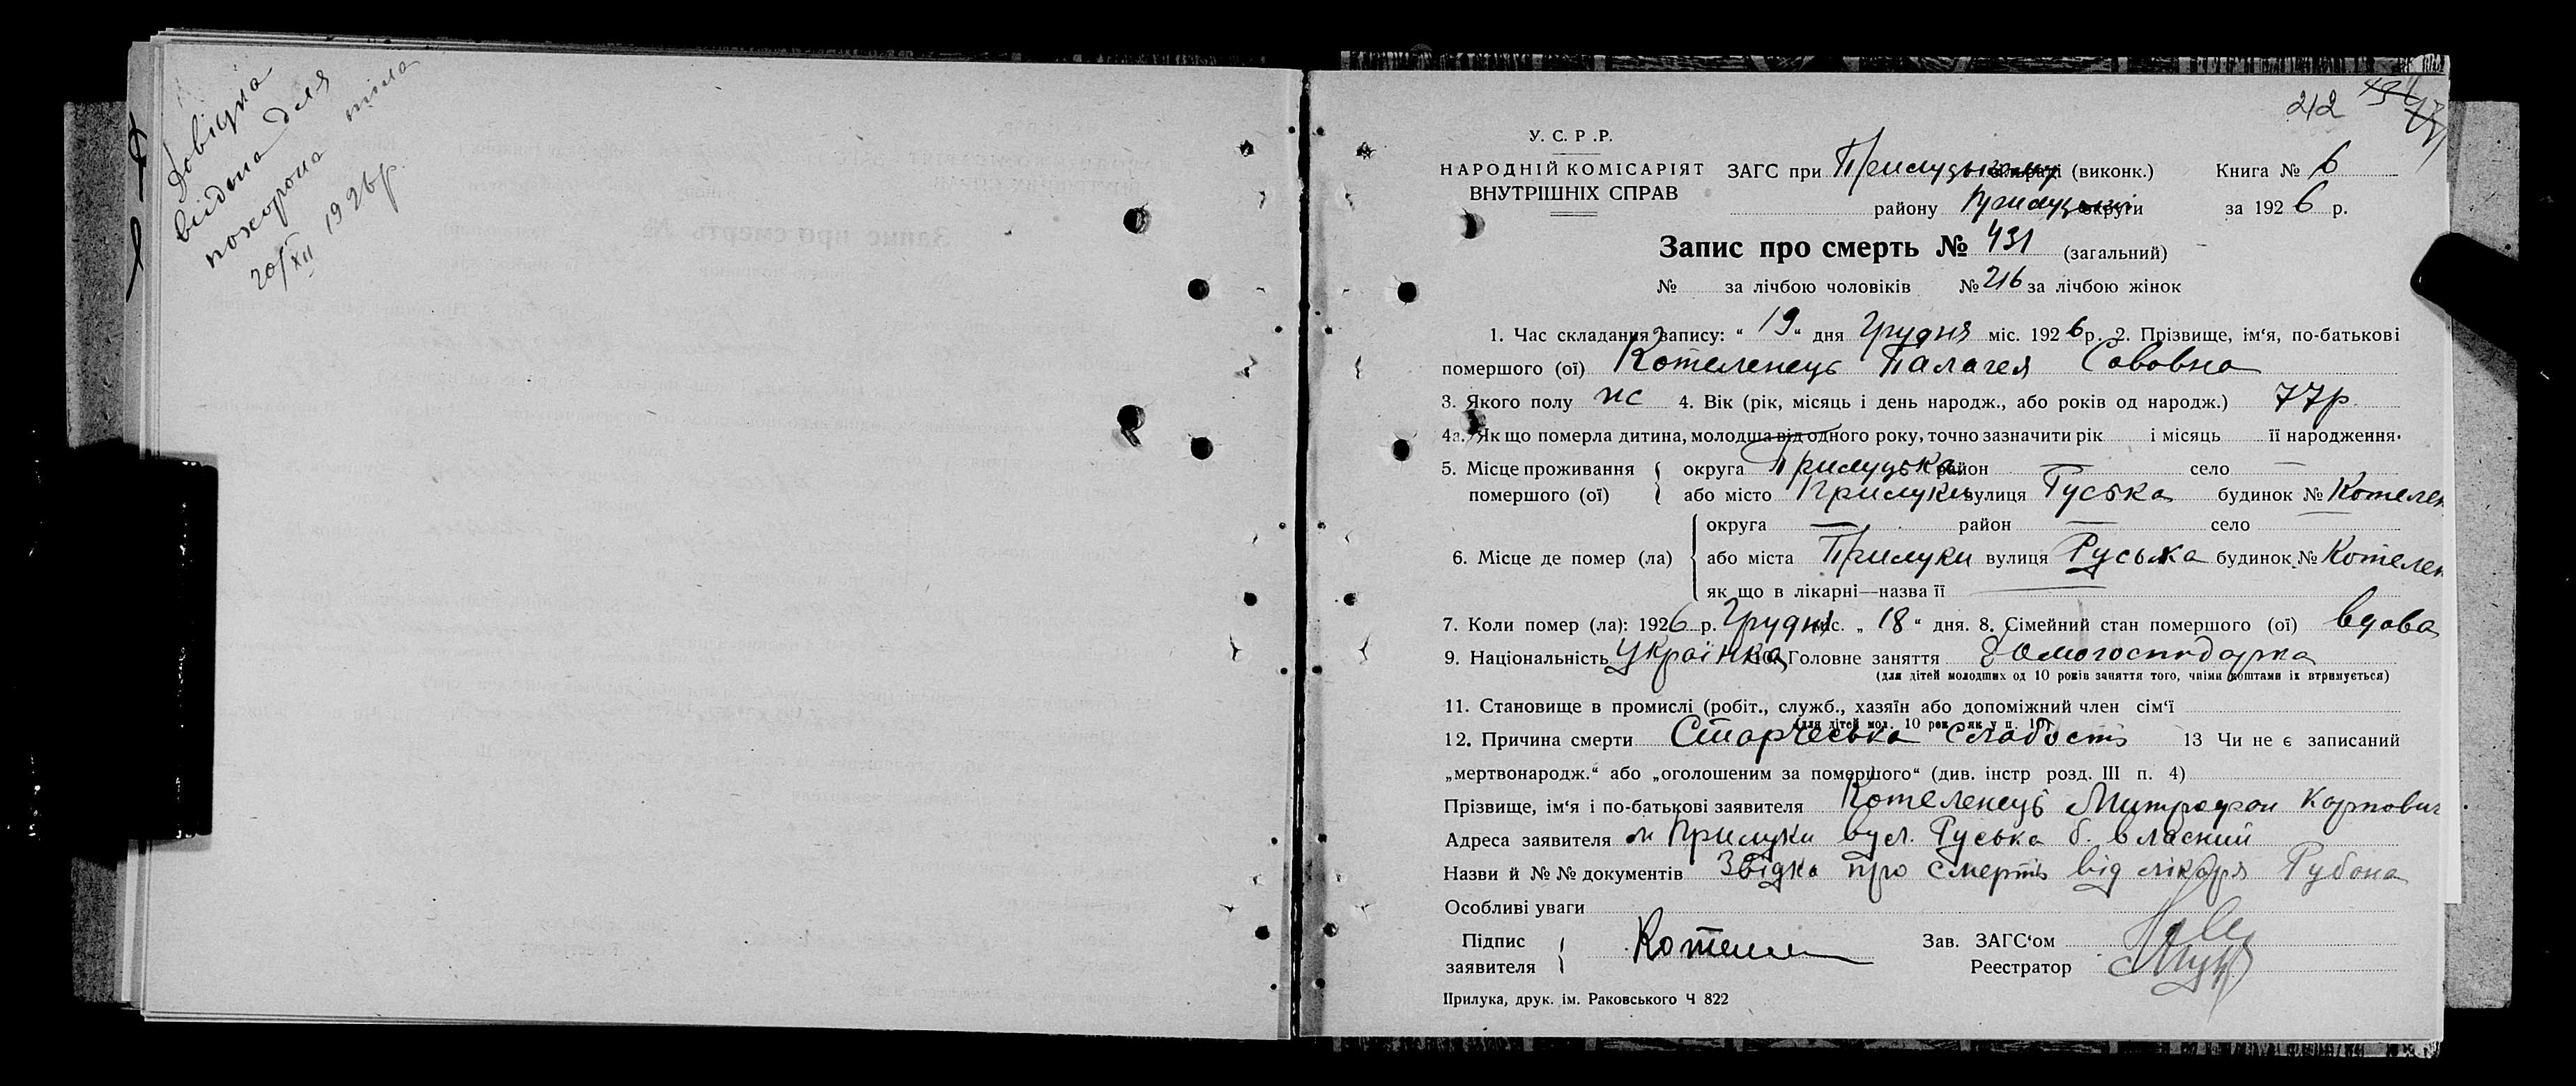 Довідка
видана для
похорона тіла
20/XII 1926 р.
212
У. С. Р. Р.
НАРОДНІЙ КОМІСАРІЯТ
ВНУТРІШНІХ СПРАВ
ЗАГС при Прилуцькому (виконк.) Книга № 6
району Прилуцької округи за 1926 р.
Запис про смерть № 431 (загальний)
№ за лічбою чоловіків № 216 за лічбою жінок
1. Час складання запису: " 19 " дня Грудня міс. 1926 р. 2. Прізвище, ім'я, по-батькові
помершого (ої) Котеленець Палагея Савовна
3. Якого полу ж 4. Вік (рік, місяць і день народж., або років од народж.) 77 р.
4а. Як що померла дитина, молодша від одного року, точно зазначити рік і місяць її народження.
5. Місце проживання помершого (ої) { округа Прилуцька район — село —
або місто Прилуки вулиця Руська будинок № Котелен
6. Місце де помер (ла) { округа — район — село
або міста Прилуки вулиця Руська будинок № Котелен
як що в лікарні—назва її —
7. Коли помер (ла): 1926 р. Грудня міс. „ 18 " дня. 8. Сімейний стан помершого (ої) вдова
9. Національність Українка 10. Головне заняття домогосподарка
(для дітей молодших од 10 років заняття того, чиїми коштами їх втримується)
11. Становище в промислі (робіт., служб., хазяїн або допоміжний член сім'ї
(для дітей мол. 10 рок. як у п. 10)
12. Причина смерти Старческа слабость 13 Чи не є записаний
„мертвонародж." або „оголошеним за помершого" (див. інстр розд. III п. 4)
Прізвище, ім'я і по-батькові заявителя Котеленець Митрофан Карпович
Адреса заявителя м Прилуки вул. Руська б. власний
Назви й №№ документів Звідка про смерть від лікаря Рубона
Особливі уваги
Підпис заявителя { Котелен Зав. ЗАГС'ом
Реестратор
Прилука, друк. ім. Раковського Ч 822